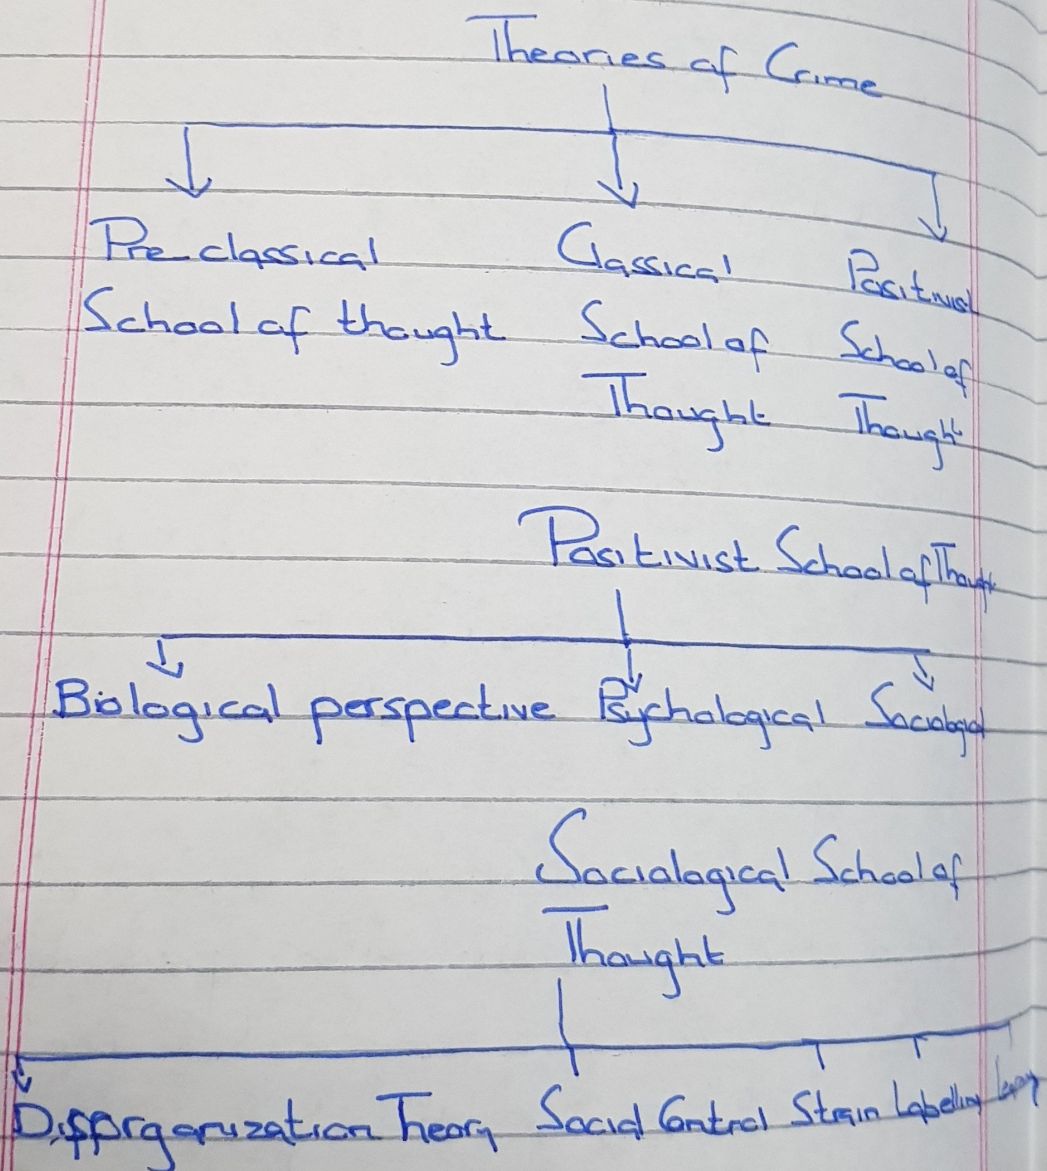 Theories of Crime
Pre classical Classical Positivist
School of thought School of School of
Thought Thought
Positivist School of Thought
Biological perspective Psychological Sociological
Sociological School of
Thought
Disorganization Theory Social Control Strain Labelling